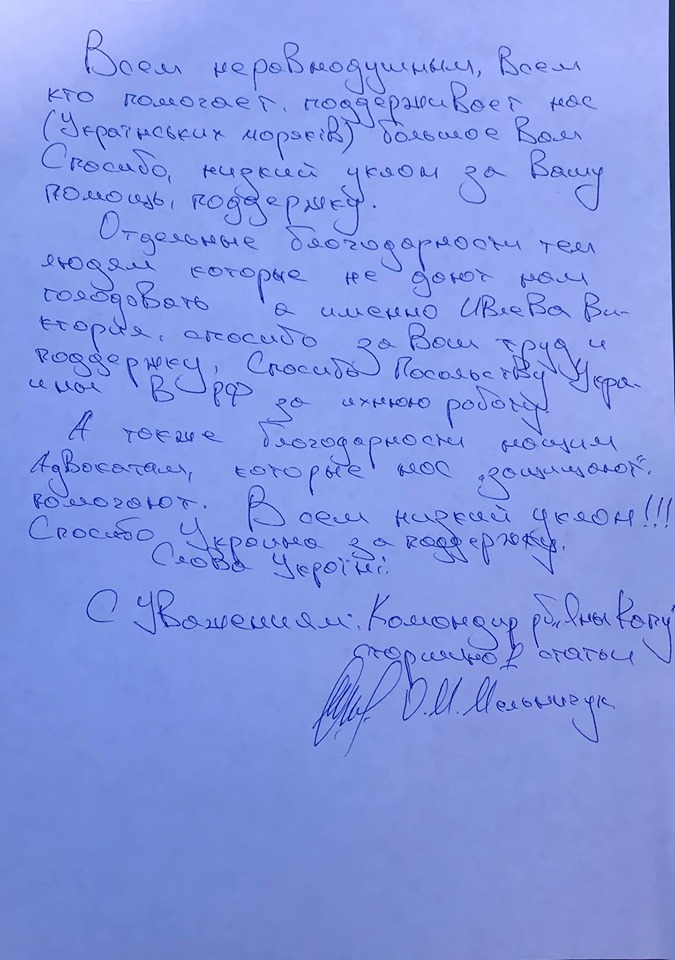 Всем неравнодушным, Всем
кто помогает, поддерживает нас
(Українських моряків) большое Вам
Спасибо, низкий уклон за Вашу
помощь, поддержку.
Отдельные благодарности тем
людям которые не дают нам
голодовать а именно Ивлева Ви-
ктория, спасибо за Ваш труд и
поддержку, Спасибо Посольству Укра-
ины В РФ за ихнюю работу
А также благодарности нашим
Адвокатам, которые нас „защищают“,
помогают. Всем низкий уклон!!!
Спасибо Украина за поддержку.
Слава Україні!
С Уважением: Командир рб„Яны Капу"
старшина 2 статьи
О.М. Мельничук